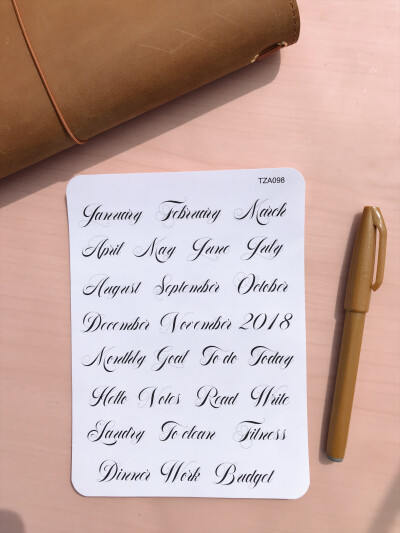 TZA098
January February March
April May June July
August September October
December November 2018
Monthly Goal To do Today
Hello Notes Read Write
Laundry To clean Fitness
Dinner Work Budget